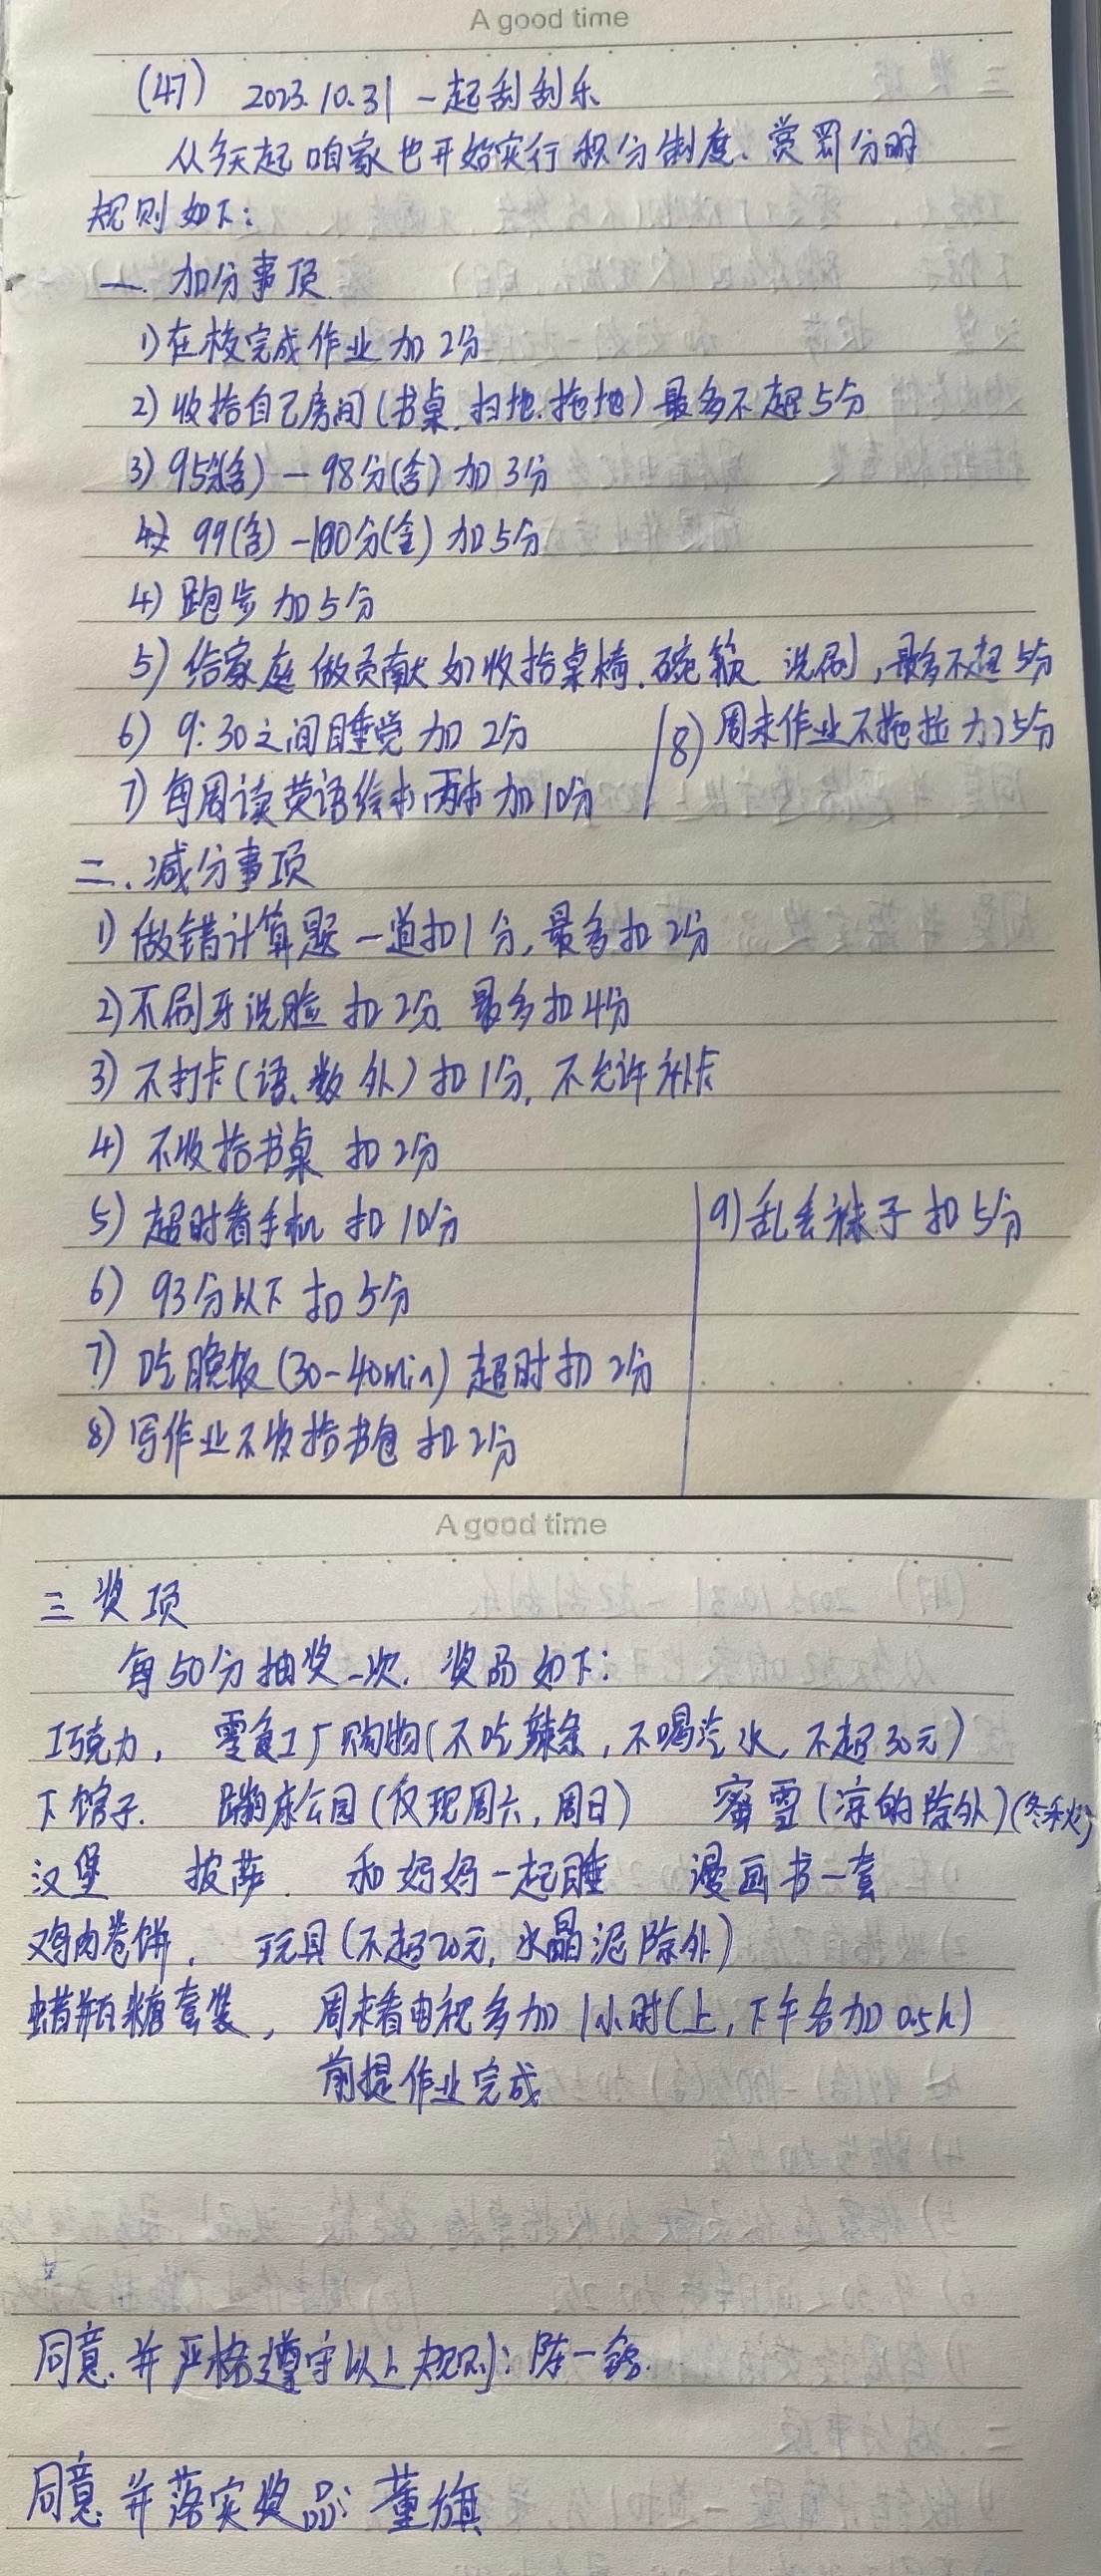 A good time
(47) 2023.10.31 一起刮刮乐
从今天起咱家也开始实行积分制度、赏罚分明
规则如下:
一. 加分事项
1) 在校完成作业 加2分
2) 收拾自己房间(书桌、扫地.拖地) 最多不超5分
3) 95分(含) - 98分(含) 加3分
99(含) -100分(含) 加5分
4) 跑步 加5分
5) 给家庭做贡献 如收拾桌椅.碗筷 洗刷, 最多不超5分
6) 9:30之间睡觉 加2分
8) 周末作业不拖拉 加5分
7) 每周读英语绘本两本 加10分
二、减分事项
1) 做错计算题 一道扣1分, 最多扣2分
2) 不刷牙洗脸 扣2分 最多扣4分
3) 不打卡(语、数 外) 扣1分, 不允许补卡
4) 不收拾书桌 扣2分
5) 超时看手机 扣10分
9) 乱丢袜子 扣5分
6) 93分以下 扣5分
7) 吃晚饭(30-40min) 超时扣2分
8) 写作业不收拾书包 扣2分
A good time
三 奖项
每50分抽奖一次. 奖品如下:
巧克力, 零食工厂购物(不吃辣条, 不喝汽水, 不超30元)
下馆子. 蹦床公园(仅现周六, 周日) 蜜雪(凉的除外)(冬季
汉堡 披萨. 和妈妈一起睡 漫画书一套
鸡肉卷饼, 玩具(不超20元, 水晶泥除外)
蜡瓶糖套装, 周末看电视多加1小时(上, 下午各加0.5h)
前提作业完成
同意.并严格遵守以上规则: 陈一
同意 并落实奖品: 董旗